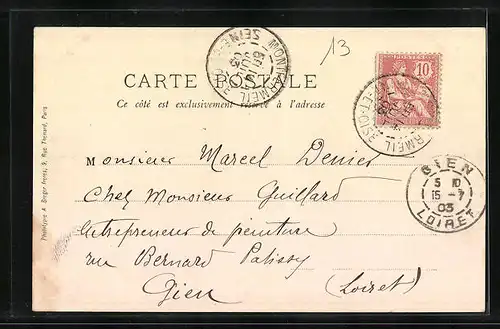 13
CARTE POSTALE
Ce côté est exclusivement réservé à l'adresse
10
MONTFERMEIL
SEINE-ET-OISE
GIEN
5 10
15 - 7
03
LOIRET
Monsieur Marcel Denier
Chez Monsieur Guillard
Entrepreneur de peinture
rue Bernard Palissy
Gien (Loiret)
Phototypie A. Berger Frères, 9, Rue Thénard, Paris